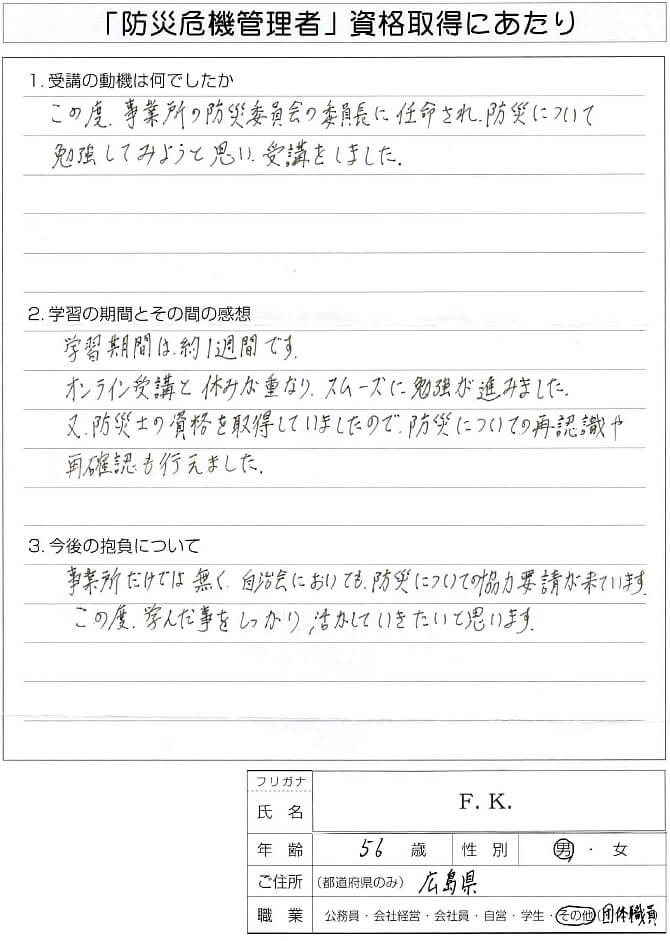 「防災危機管理者」資格取得にあたり
1. 受講の動機は何でしたか
この度、事業所の防災委員会の委員長に任命され、防災について
勉強してみようと思い、受講をしました。
2. 学習の期間とその間の感想
学習期間は、約1週間です。
オンライン受講と休みが重なり、スムーズに勉強が進みました。
又、防災士の資格を取得していましたので、防災についての再認識や
再確認も行えました。
3. 今後の抱負について
事業所だけでは無く、自治会においても、防災についての協力要請が来ています。
この度、学んだ事をしっかり活かしていきたいと思います。
フリガナ
氏名 F. K.
年齢 56 歳 性別 男・女
ご住所 (都道府県のみ) 広島県
職業 公務員・会社経営・会社員・自営・学生・その他(団体職員